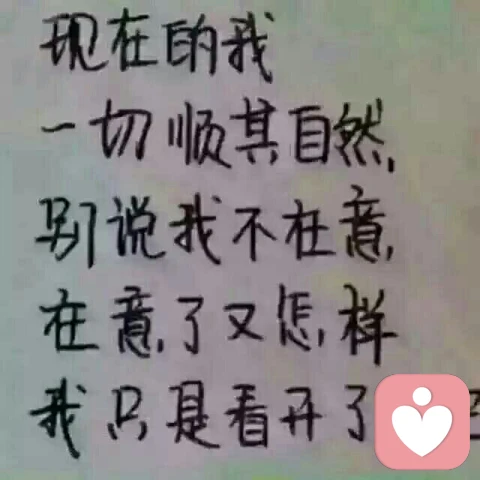 现在的我
一切顺其自然,
别说我不在意,
在意了又怎样
我只是看开了